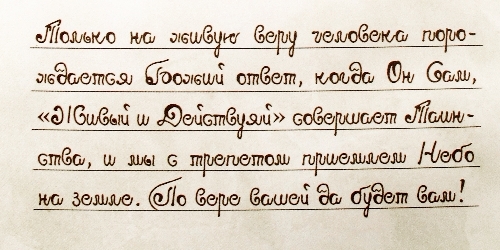 Только на живую веру человека поро-
ждается Божий ответ, когда Он Сам,
«Живый и Действуяй» совершает Таин-
ства, и мы с трепетом приемлем Небо
на земле. По вере вашей да будет вам!